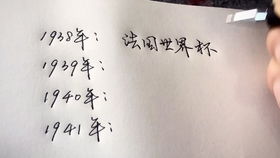 1938年：法国世界杯
1939年：
1940年：
1941年：